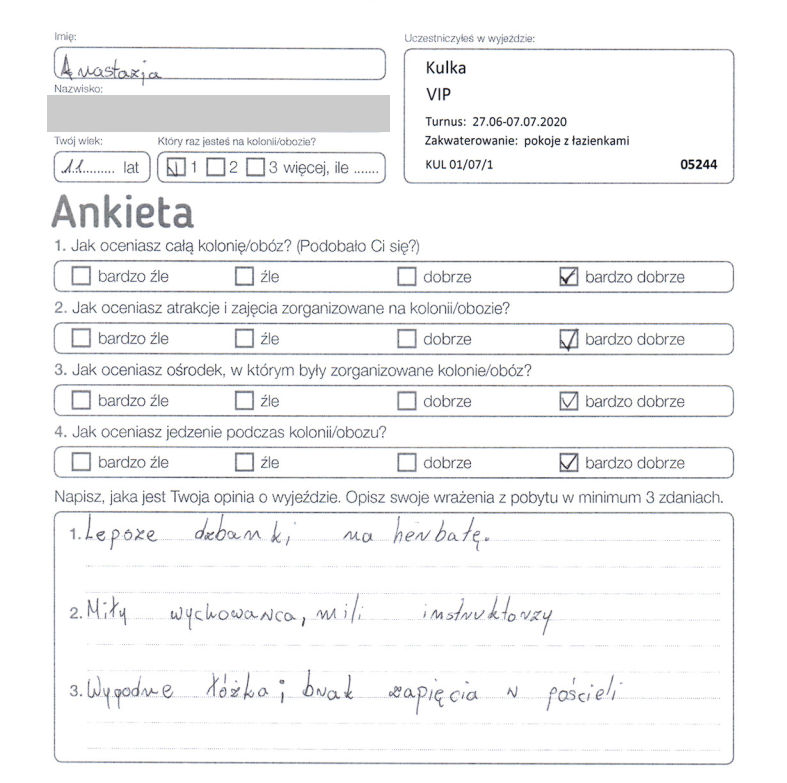 Imię:
Anastazja
Nazwisko:
Twój wiek:
11 lat
Który raz jesteś na kolonii/obozie?
1 2 3 więcej, ile .......
Uczestniczyłeś w wyjeździe:
Kulka
VIP
Turnus: 27.06-07.07.2020
Zakwaterowanie: pokoje z łazienkami
KUL 01/07/1 05244
Ankieta
1. Jak oceniasz całą kolonię/obóz? (Podobało Ci się?)
bardzo źle źle dobrze bardzo dobrze
2. Jak oceniasz atrakcje i zajęcia zorganizowane na kolonii/obozie?
bardzo źle źle dobrze bardzo dobrze
3. Jak oceniasz ośrodek, w którym były zorganizowane kolonie/obóz?
bardzo źle źle dobrze bardzo dobrze
4. Jak oceniasz jedzenie podczas kolonii/obozu?
bardzo źle źle dobrze bardzo dobrze
Napisz, jaka jest Twoja opinia o wyjeździe. Opisz swoje wrażenia z pobytu w minimum 3 zdaniach.
1. Lepsze dzbanki na herbatę.
2. Miły wychowawca, mili instruktorzy
3. Wygodne łóżka; brak zapięcia w pościeli